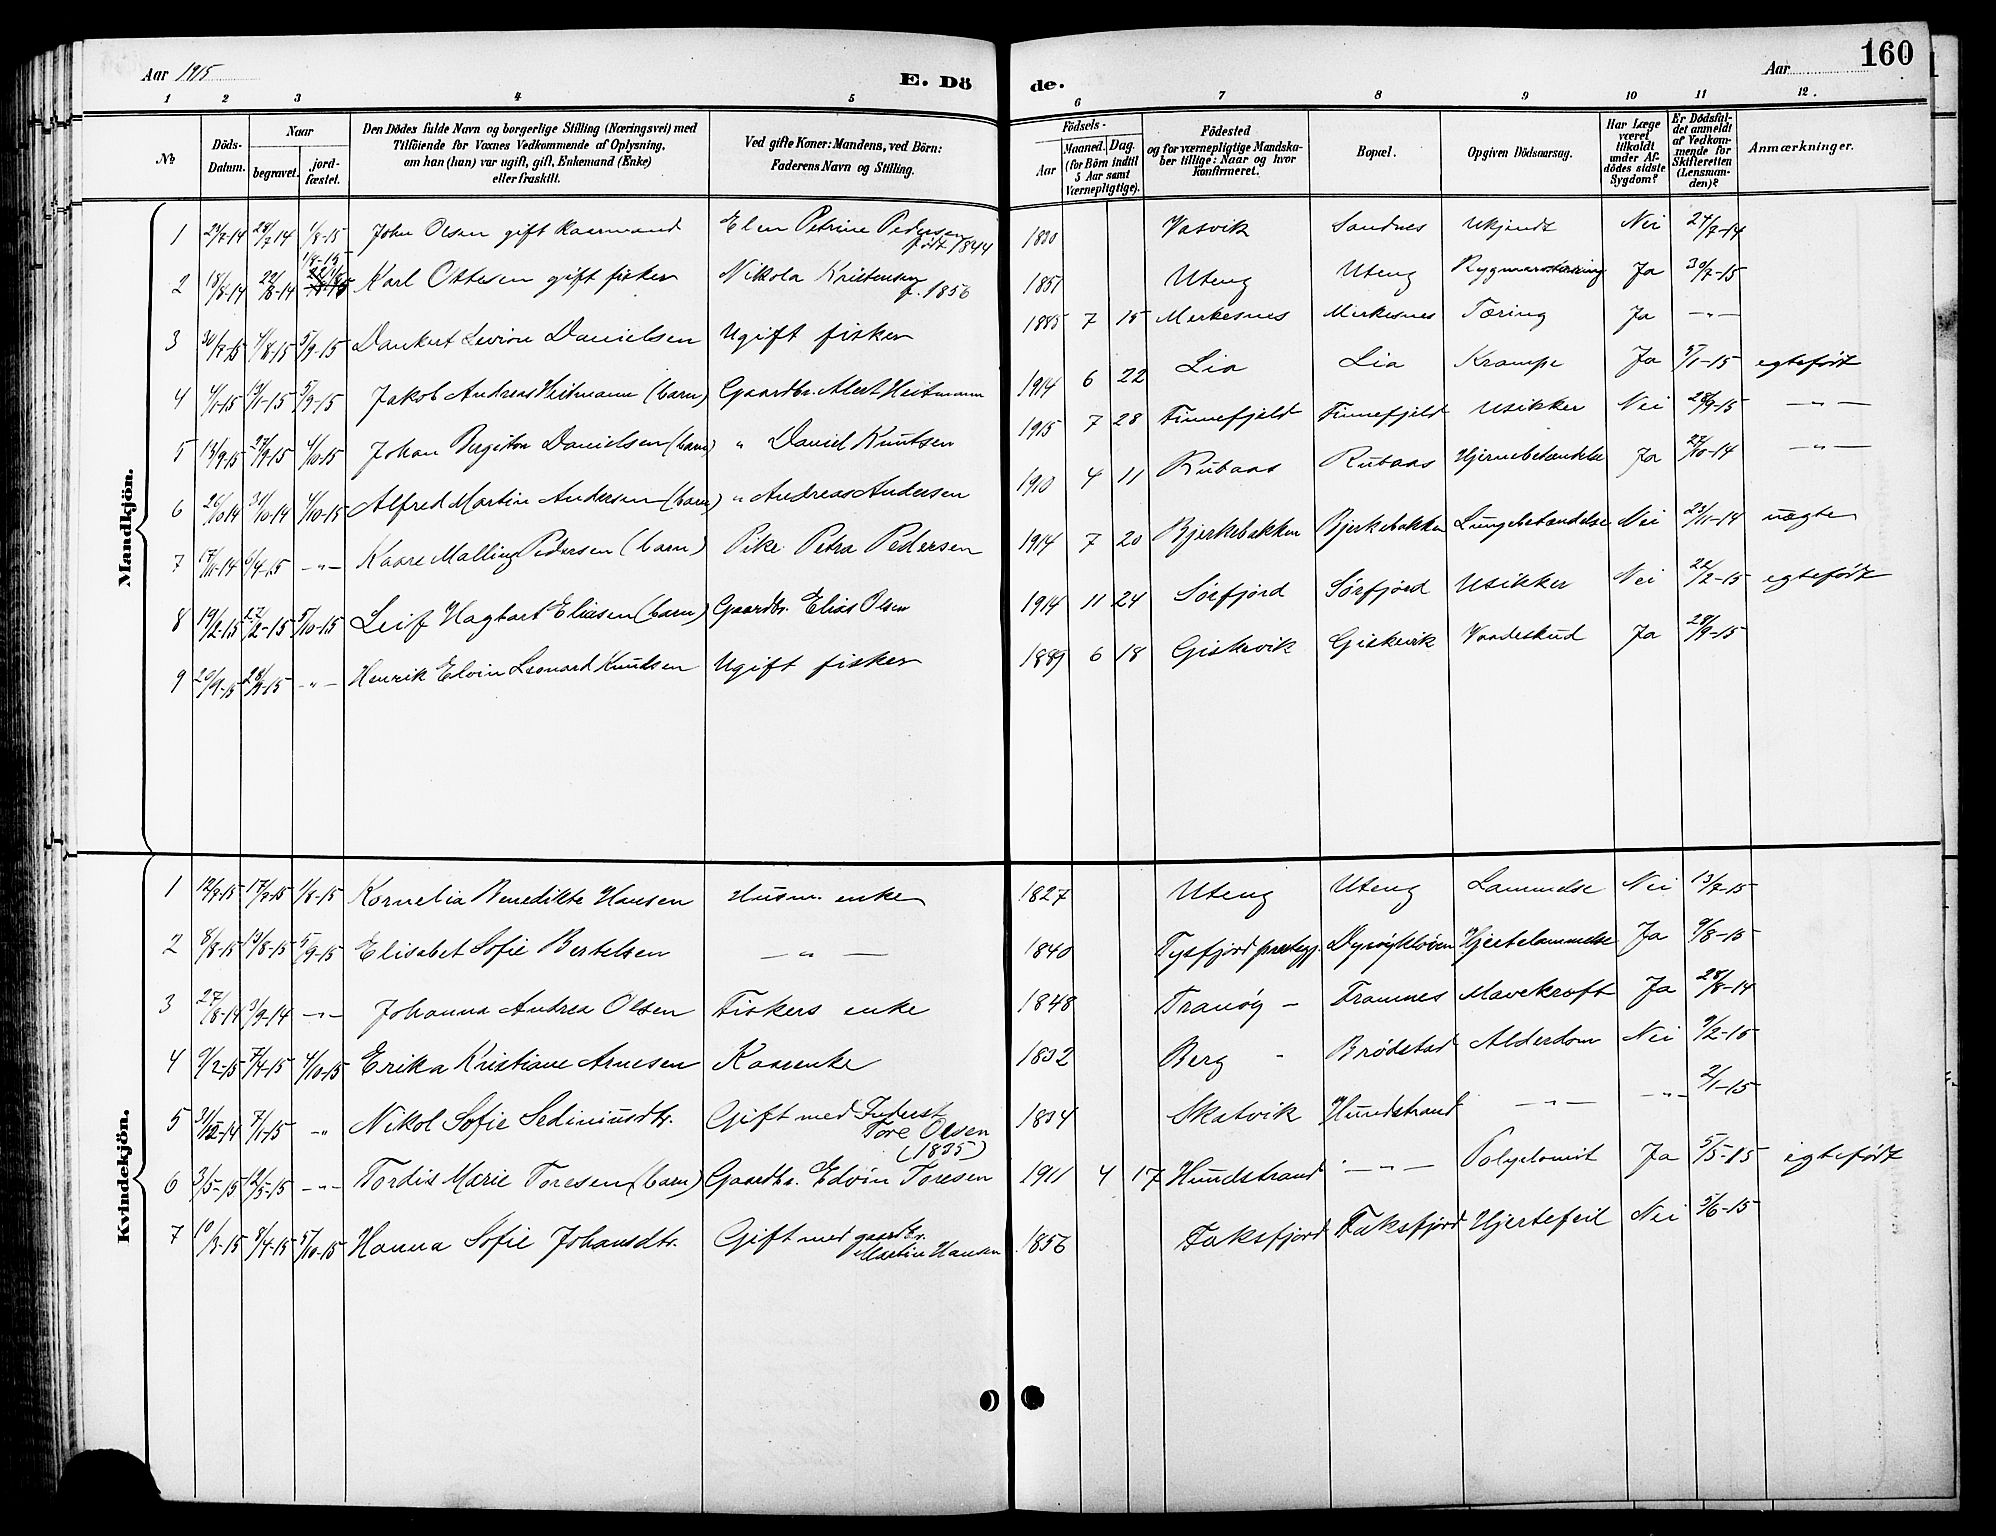 160
Aar 1915
E. Dö
de.
Aar
1 2 3 4 5 6 7 8 9 10 11 12.
No
Döds-
Datum.
Naar
begravet.
jord-
fæstet.
Den Dödes fulde Navn og borgerlige Stilling (Næringsvei) med
Tilföiende for Voxnes Vedkommende af Oplysning,
om han (hun) var ugift, gift, Enkemand (Enke)
eller fraskilt.
Ved gifte Koner: Mandens, ved Börn:
Faderens Navn og Stilling.
Födsels-
Aar
Maaned. Dag.
(for Börn indtil
5 Aar samt
Værnepligtige).
Födested
og for værnepligtige Mandska-
ber tillige: Naar og hvor
Konfirmeret.
Bopæl.
Opgiven Dödsaarsag.
Har Læge
været
tilkaldt
under Af-
dödes sidste
Sygdom?
Er Dödsfal-
det anmeldt
af Vedkom-
mende for
Skifteretten
(Lensman-
den)?
Anmærkninger.
Mandkjön.
1 23/7-14 28/7 14 1/8-15 John Olsen gift kaarmand Elen Petrine Pedersen født 1844 1830 Vasvik Sandnes Ukjendt Nei 27/7-14
2 18/8-14 22/8-14 1/8-15 Karl Ottesen gift fisker Nikola Kristensen f. 1856 1851 Uteng Uteng Ja 30/7-15
3 30/7-15 4/8-15 5/9-15 Dankert Levion Danielsen Ugift fisker 1885 7 15 Merkesnes Merkesnes Tæring Ja -"-
4 4/1-15 13/1-15 5/9-15 Jakob Andreas Heitmann (barn) Gaardbr. Albert Heitmann 1914 6 22 Lia Lia Krampe Ja 5/1-15 egtefødt
5 13/9-15 27/9-15 4/10-15 Johan Birgiton Danielsen (barn) " Daniel Knutsen 1915 7 28 Finnefjeld Finnefjeld Usikker Nei 28/9-15 -"-
6 26/10 14 31/10-14 4/10-15 Alfred Martin Andersen (barn) " Andreas Andersen 1910 4 11 Rubaas Rubaas Hjernebetændelse Ja 27/10-14 -"-
7 17/11-14 6/4-15 -"- Kaare Malling Pedersen (barn) Pike Petra Pedersen 1914 7 20 Bjerkebakken Bjerkebakken Lungebetændelse Nei 23/11-14 uægte
8 19/2-15 27/2-15 5/10-15 Leif Hagbart Eliasen (barn) Gaardbr. Elias Olsen 1914 11 24 Sørfjord Sørfjord Usikker Nei 22/2-15 egtefødt
9 20/9-15 28/9-15 -"- Henrik Elvin Leonard Knutsen Ugift fisker 1889 6 18 Giskevik Giskevik Vaadeskud Ja 28/9-15
Kvindekjön.
1 12/7-15 17/7-15 1/8-15 Kornelia Benedikte Hansen Husm. enke 1827 Uteng Uteng Lammelse Nei 13/7-15
2 8/8-15 13/8-15 5/9-15 Elisabet Sofie Bertelsen -"- 1840 Tysfjord prestegj. Hjertelammelse Ja 9/8-15
3 27/8-14 3/9-14 -"- Johanna Andrea Olsen Fiskers enke 1848 Tranøy - Framnes Mavekræft Ja 28/8-14
4 9/2-15 7/4-15 4/10-15 Erika Kristiane Arnesen Kaarenke 1832 Berg - Brødstad Alderdom Nei 9/2-15
5 31/12-14 7/1-15 " Nikol Sofie Sediniusdtr. Gift med Inderst Tore Olsen (1835) 1834 Skatvik Hundstrand -"- -"- 2/1-15
6 3/5-15 12/5-15 -"- Tordis Marie Toresen (barn) Gaardbr. Edvin Toresen 1911 4 17 Hundstrand -"- Ja 5/5-15 egtefødt
7 10/3-15 8/4-15 5/10-15 Hanna Sofie Johansdtr. Gift med gaardbr. Martin Hansen 1856 Faksfjord Faksfjord Hjertefeil Nei 5/6-15